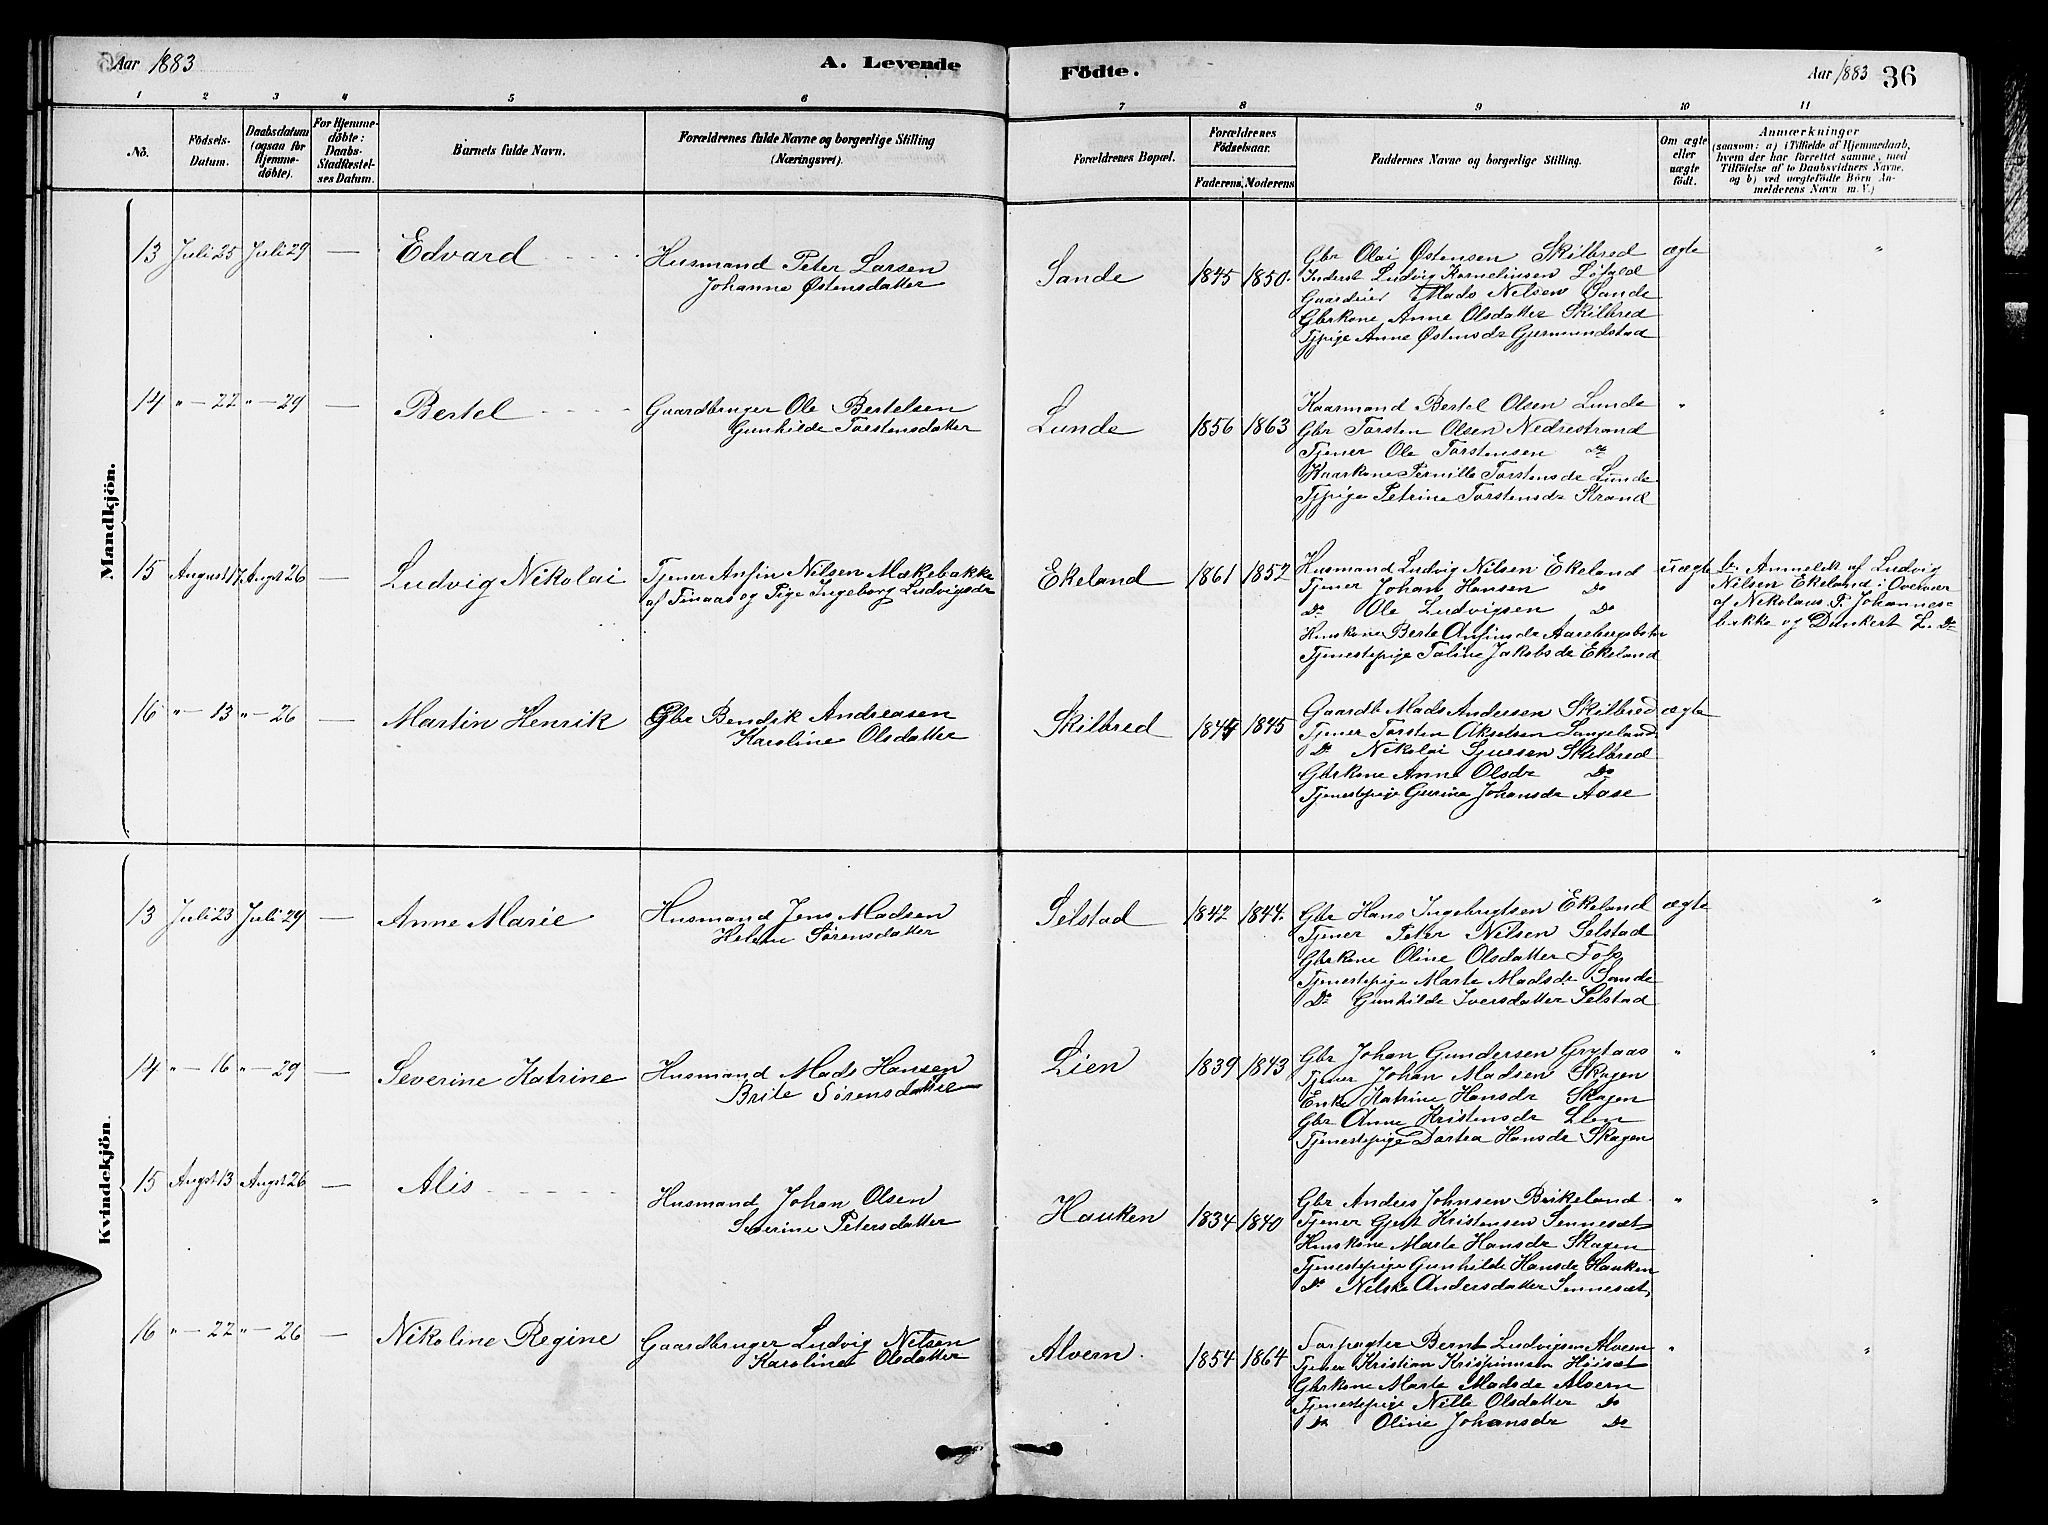 Aar 1883
A. Levende
Födte.
Aar 1883 36
1 2 3 4 5 6 7 8 9 10 11
No.
Födsels-Datum.
Daabsdatum (ogsaa for Hjemme-döbte).
For Hjemme-döbte: Daabs-Stadfæstel-ses Datum.
Barnets fulde Navn.
Forældrenes fulde Navne og borgerlige Stilling (Næringsvei).
Forældrenes Bopæl.
Forældrenes Födselsaar.
Faderens. Moderens.
Faddernes Navne og borgerlige Stilling.
Om ægte eller uægte födt.
Anmærkninger
(saasom: a) i Tilfælde af Hjemmedaab,
hvem der har forrettet samme, med
Tilföielse af to Daabsvidners Navne,
og b) ved uægtefödte Börn An-
melderens Navn m. V.)
Mandkjön.
13 Juli 25 Juli 29 — Edvard
Husmand Peter Larsen
Johanne Østensdatter
Sande 1845 1850.
Gbr Olai Østensen Skilbred
Inderst Ludvig Kornelius­sen
Gaardeier Mads Nilsen Sande
Gbrkone Anne Olsdatter Skilbred
Tjpige Anne Østensdr Gjermundstad
ægte "
14 " — 22 " — 29 — Bertel
Gaardbruger Ole Bertelsen
Gunhilde Torstensdatter
Lunde 1856 1863
Kaarmand Bertel Olsen Lunde
Gbr Torsten Olsen Nedrestrand
Tjener Ole Torstensen Do
Kaarkone Pernille Torstensdr Lunde
Tjpige Petrine Torstensdr Strand
" "
15 August 17. Augst 26 — Ludvig Nikolai
Tjener Anfin Nilsen Mækebakke
af Tinaas og Pige Ingeborg Ludvigsdr
Ekeland 1861 1852
Husmand Ludvig Nilsen Ekeland
Tjener Johan Hansen Do
Do Ole Ludvigsen Do
Huskone Berte Anfinsdr
Tjenestepige Taline Jakobsdr Ekeland
uægte
b. Anmeldt af Ludvig
Nilsen Ekeland i Overvær
af Nikolaus P. Johannes-
bakke og Dankert L. Do
16 " — 13 " — 26 — Martin Henrik
Gbr Bendik Andreasen
Karoline Olsdatter
Skilbred 1844 1845
Gaardb Mads Andersen Skilbred
Tjener Torsten Akselsen Langeland
Do Nikolai Sjursen Skilbred
Gbrkone Anne Olsdr Do
Tjenestepige Gurine Johansdr Aase
ægte
Kvindekjön.
13 Juli 23 Juli 29 — Anne Marie
Husmand Jens Madsen
Helene Sørensdatter
Selstad 1842 1844.
Gbr Hans Ingebrigtsen Ekeland
Tjener Peter Nilsen Selstad
Gbrkone Oline Olsdatter Foss
Tjenestepige Marte Madsdr Sande
Do Gunhilde Iversdatter Selstad
ægte "
14 " — 16 " — 29 — Severine Katrine
Husmand Mads Hansen
Brite Sørensdatter
Lien 1839 1843
Gbr Johan Gundersen Grytaas
Tjener Johan Madsen Skagen
Enke Katrine Hansdr Skagen
Gbr Anne Kristensdr Lien
Tjenestepige Dortea Hansdr Skagen
" "
15 Augst 13 Augst 26 — Alis
Husmand Johan Olsen
Severine Petersdatter
Hauken 1834 1840
Gbr Anders Johnsen Birkeland
Tjener Gjert Kristensen Sennesæt
Huskone Marte Hansdr Skagen
Tjenestepige Gunhilde Hansdr Hauken
Do Nilske Andersdatter Sennesæt
" "
16 " — 22 " — 26 — Nikoline Regine
Gaardbruger Ludvig Nilsen
Karoline Olsdatter
Alvern. 1854 1864
Forpagter Bernt Ludvigsen Alvern
Tjener Kristian Krispinusen
Gbrkone Marte Madsdr Alvern
Tjenestepige Nille Olsdatter Do
Do Oline Johansdr Do
" "